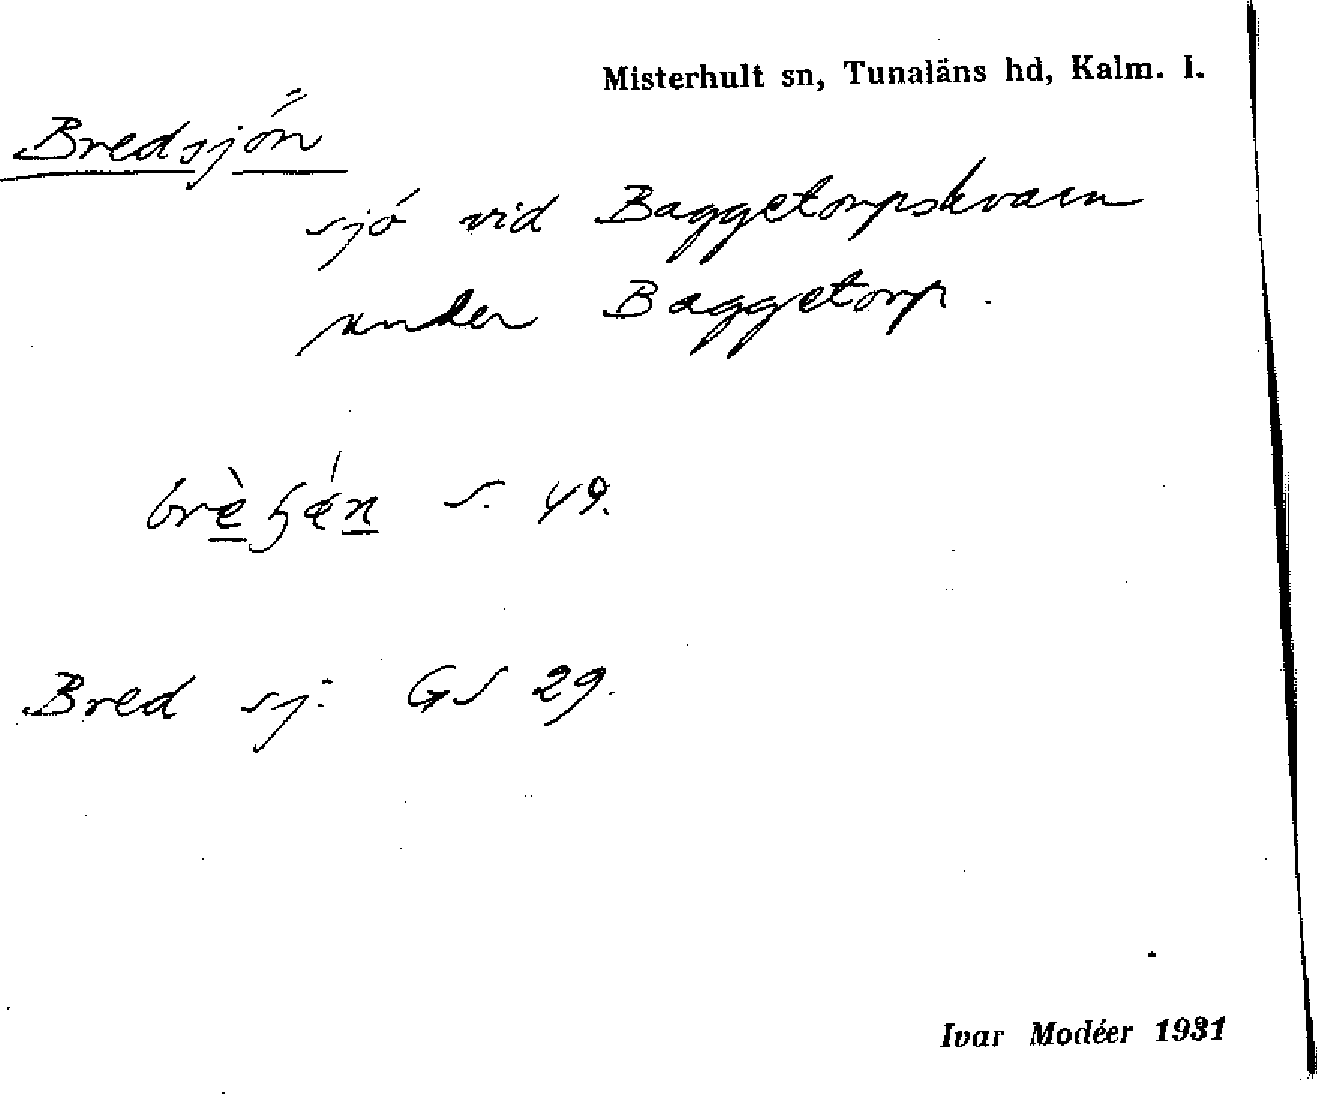 Misterhult sn, Tunaläns hd, Kalm. l.
Bredsjön
sjö vid Baggetorpskvarn
under Baggetorp.
s. 49.
Bred sj: GS 29.
Ivar Modéer 1931